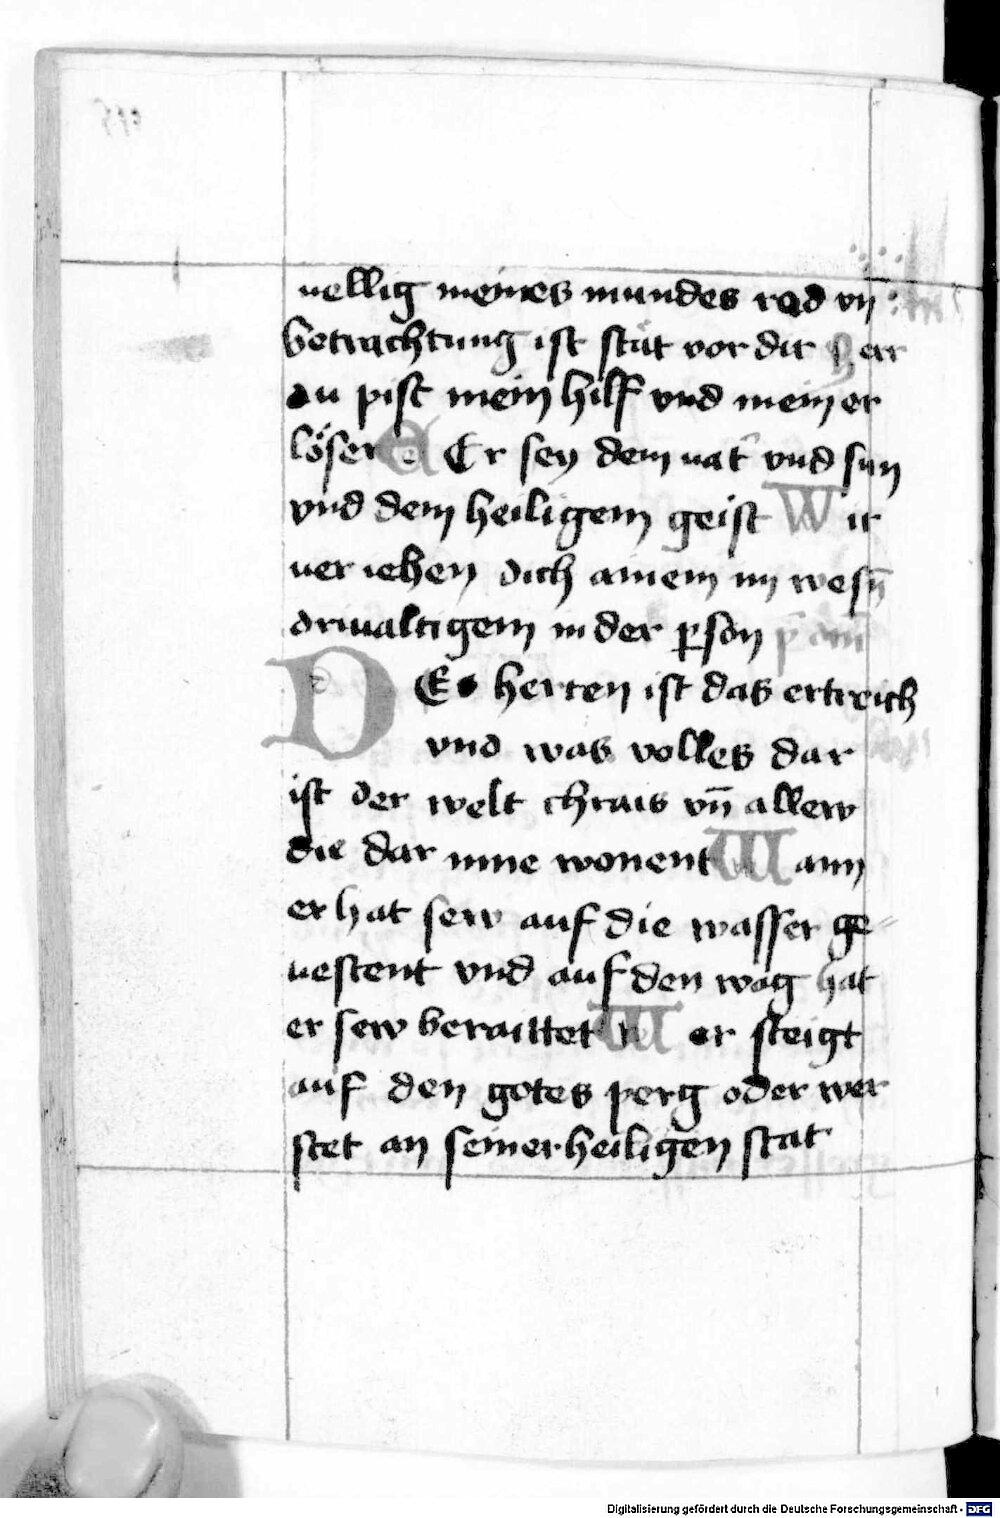 uellig meines mundes red vn̄
betrachtung ist stät vor dir Herr
du pist mein hilf vnd mein er
löser E Er sey dem uat̄ vnd sun
vnd dem heiligem geist Wir
ueriehen dich ainem im wesn̄
driualtigem in der p̱son
DEs herren ist das ertreich
vnd was volles dar
ist der welt chrais vn̄ allew
die dar inne wonent Wann
er hat sew auf die wasser ge⸗
uestent vnd auf den wag hat
er sew beraittet Wer steigt
auf den gotes perg oder wer
stet an seiner heiligen stat
Digitalisierung gefördert durch die Deutsche Forschungsgemeinschaft - DFG